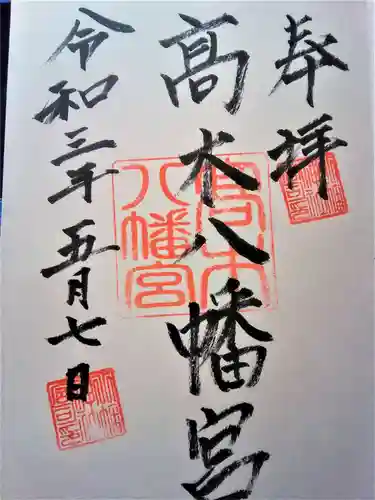 奉拝
高木八幡宮
令和三年五月七日
高木
八幡宮